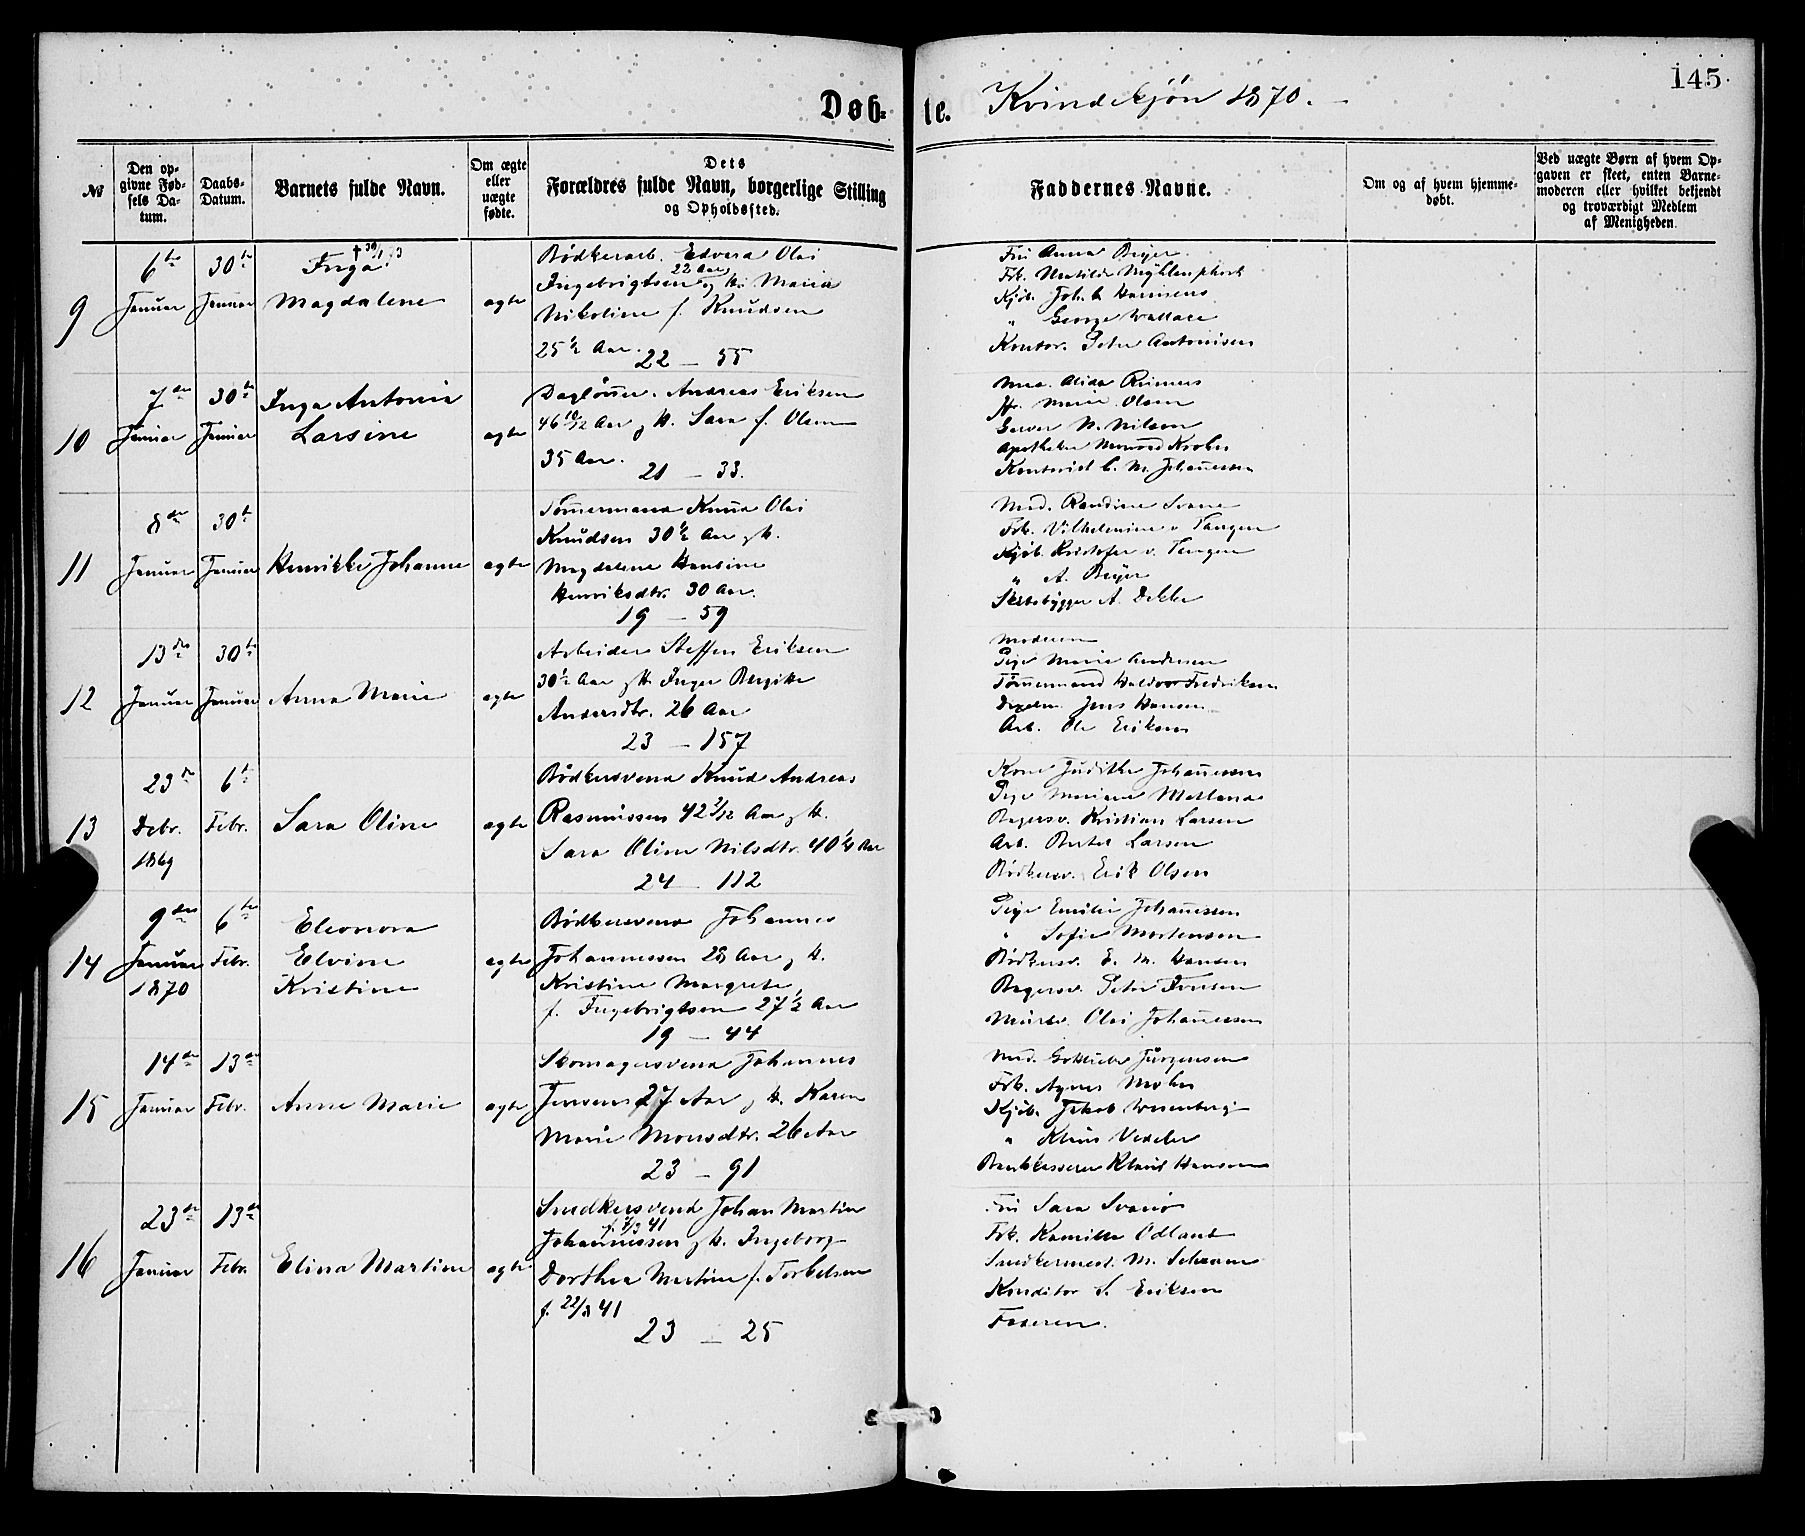 145
Døb-
te. Kvindekjøn 1870.
№
Den op-
givne Fød-
sels Da-
tum.
Daabs-
Datum.
Barnets fulde Navn.
Om ægte
eller
uægte
fødte.
Dets
Forældres fulde Navn, borgerlige Stilling
og Opholdssted.
Faddernes Navne.
Om og af hvem hjemme-
døbt.
Ved uægte Børn af hvem Op-
gaven er skeet, enten Barne-
moderen eller hvilket bekjendt
og troværdigt Medlem
af Menigheden.
9
6te
Januar
30te
Januar
Inga
Magdalene
ægte
Bødkerarb. Edvard Olai
22 Aar
Ingebrigtsen og H. Maria
Nikoline f. Knudsen
25½ Aar.
22 — 55
Fru Anna Beyer
Frk. Matilde Myhlenphort
Kjøb. Joh. Hannisens
" George Wallace
Kontor. Peter Antonisen
10
7de
Januar
30te
Januar
Inga Antonia
Larsine
ægte
Dagløner Andreas Eriksen
46 10/12 Aar og H. Sara f. Olsen
35 Aar.
21 — 33.
Mad. Alida Reimers
Jfr. Marie Olsen
Garver N. Nilsen
Kontorist C. M. Johannessen
11
8de
Januar
30te
Januar
Henrikke Johanne
ægte
Tømermand Knud Olai
Knudsen 30½ Aar og H.
Magdalene Hansine
Henriksdtr. 30 Aar.
19 — 59
Mad. Randine Svane
Frk. Vilhelmine v. Tangen
Kjøb. Kristofer v. Tangen
" A. Beyer
Skibsbygger A. Dekke
12
13de
Januar
30te
Januar
Anna Marie
ægte
Arbeider Steffen Eriksen
30½ Aar og H. Inger Bergitte
Andersdtr. 26 Aar
23 — 157
Moderen
Pige Marie Andersen
Tømermand Haldvor Fredriksen
Jens Hansen
Arb. Ole Eriksen
13
23de
Debr.
1869
6te
Febr.
Sara Oline
ægte
Bødkersvend Knud Andreas
Rasmussen 42 3/12 Aar og H.
Sara Oline Nilsdtr. 40¼ Aar
24 — 112
Kone Judithe Johannessen
Pige Mariane Metland
Bagersv. Kristian Larsen
Arb. Bertel Larsen
Bødkersv. Erik Olsen
14
9de
Januar
1870
6te
Febr.
Eleonora
Elvine
Kristine
ægte
Bødkersvend Johannes
Johannessen 28 Aar og H.
Kristine Margrete
f. Ingebrigtsen 27½ Aar
19 — 44
Pige Emilie Johannessen
" Sofie Mortensen
Bødkersv. E. M. Hansen
Bagersv. Peter Iversen
Murer. Olai Johannessen
15
14de
Januar
13de
Febr.
Anne Marie
ægte
Skomagersvend Johannes
Jensen 27 Aar og H. Karen
Marie Monsdtr. 26 Aar
23 — 91
Mad. Gottliebe Jürgensen
Frk. Agnes Mohn
Kjøb. Jakob Wesenberg
" Klaus Vedeler
Bankkasserer Klaus Hansen
16
23de
Januar
13de
Febr.
Elina Martine
ægte
Snedkersvend Johan Martin
f. 1/3 41
Johannessen og H. Ingeborg
Dorthea Martine f. Torkelsen
f. 22/8 41
23 — 25
Fru Sara Svanø
Frk. Kamille Odland
Snedkermest. M. Schram
Konditor S. Eriksen
Faderen.